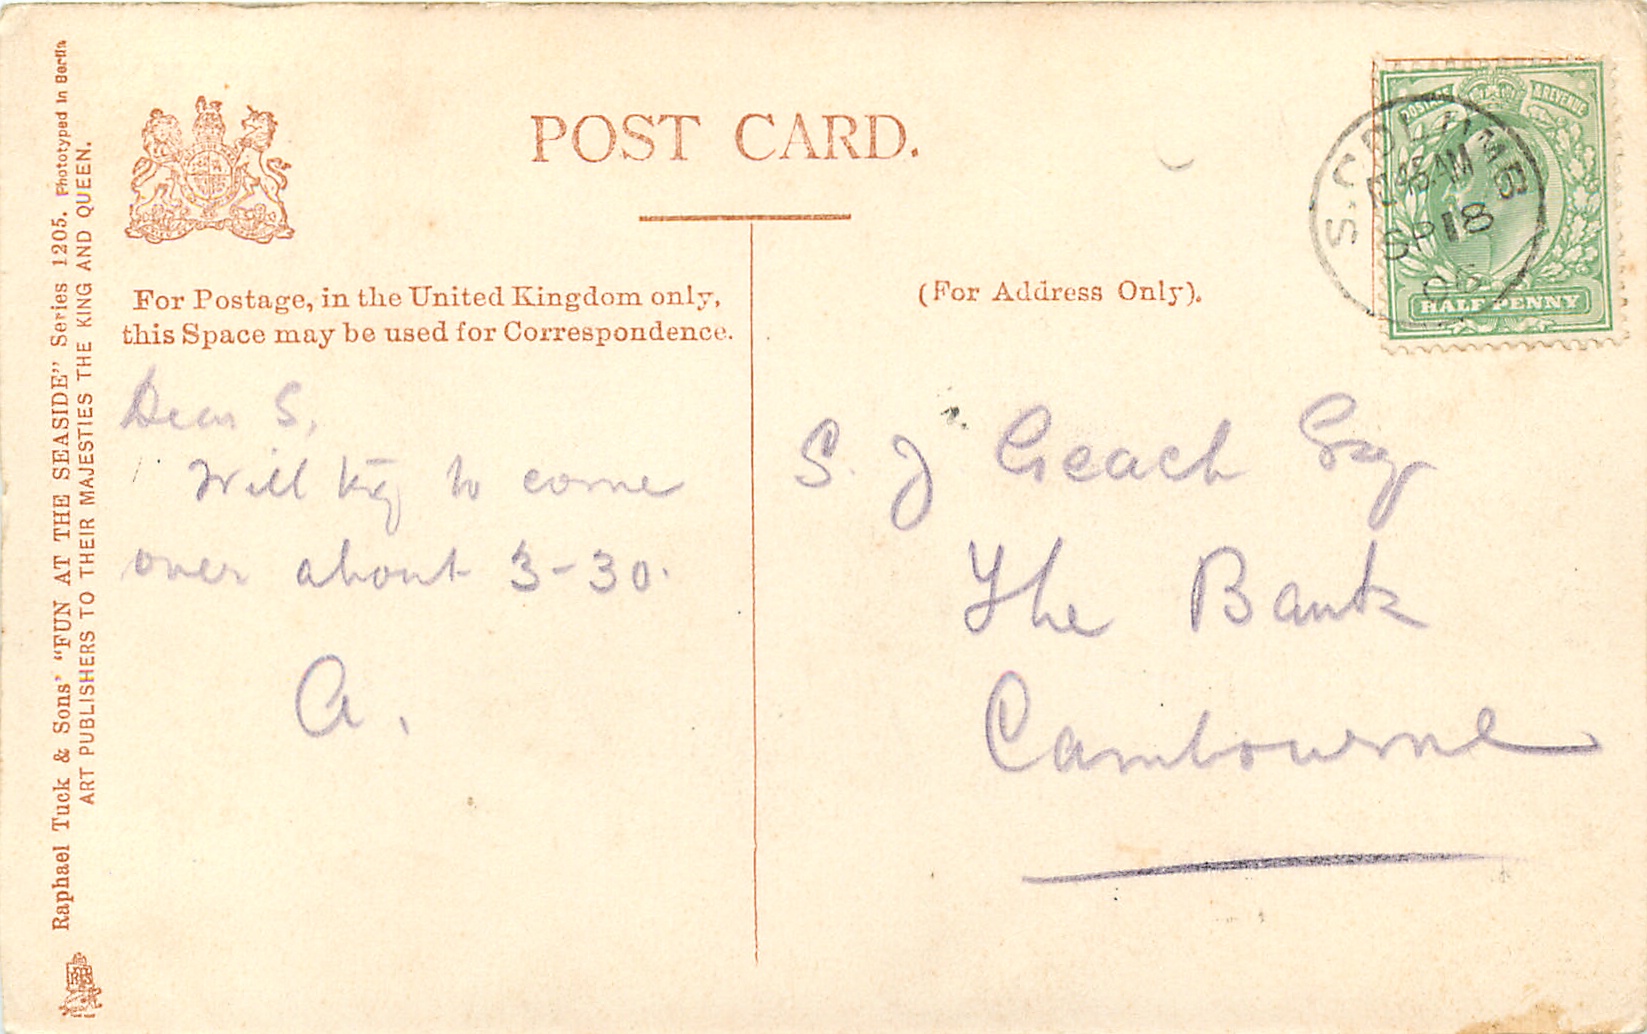 POST CARD.
For Postage, in the United Kingdom only,
this Space may be used for Correspondence.
(For Address Only).
Dear S,
Will try to come
over about 3-30.
A.
S. J Geach Esq
The Bank
Cambourne
Raphael Tuck & Sons' "FUN AT THE SEASIDE" Series 1205. Phototyped in Berlin
ART PUBLISHERS TO THEIR MAJESTIES THE KING AND QUEEN.
POSTAGE & REVENUE
HALFPENNY
S. COLUMB
45 AM
SP 18
06